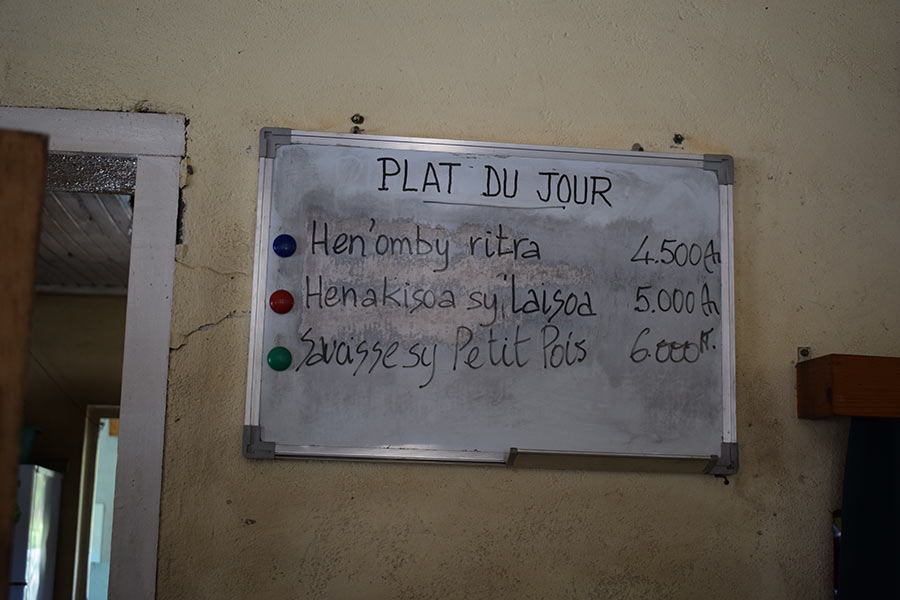 PLAT DU JOUR
Hen'omby ritra 4.500Ar
Henakisoa sy laisoa 5.000Ar
Sauaisse sy Petit Pois 6.000